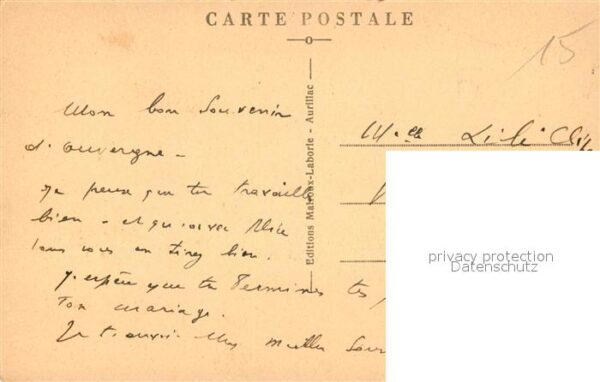 CARTE POSTALE
15
Mon bon Souvenir
d'Auvergne -
Je pense que tu travailles
bien - et qu'avec Alice
vous vous en tirez bien.
J'espère que tu termines tes
Ton mariage.
Je t'envoie
Editions Malroux-Laborie - Aurillac
Melle Lili
privacy protection
Datenschutz